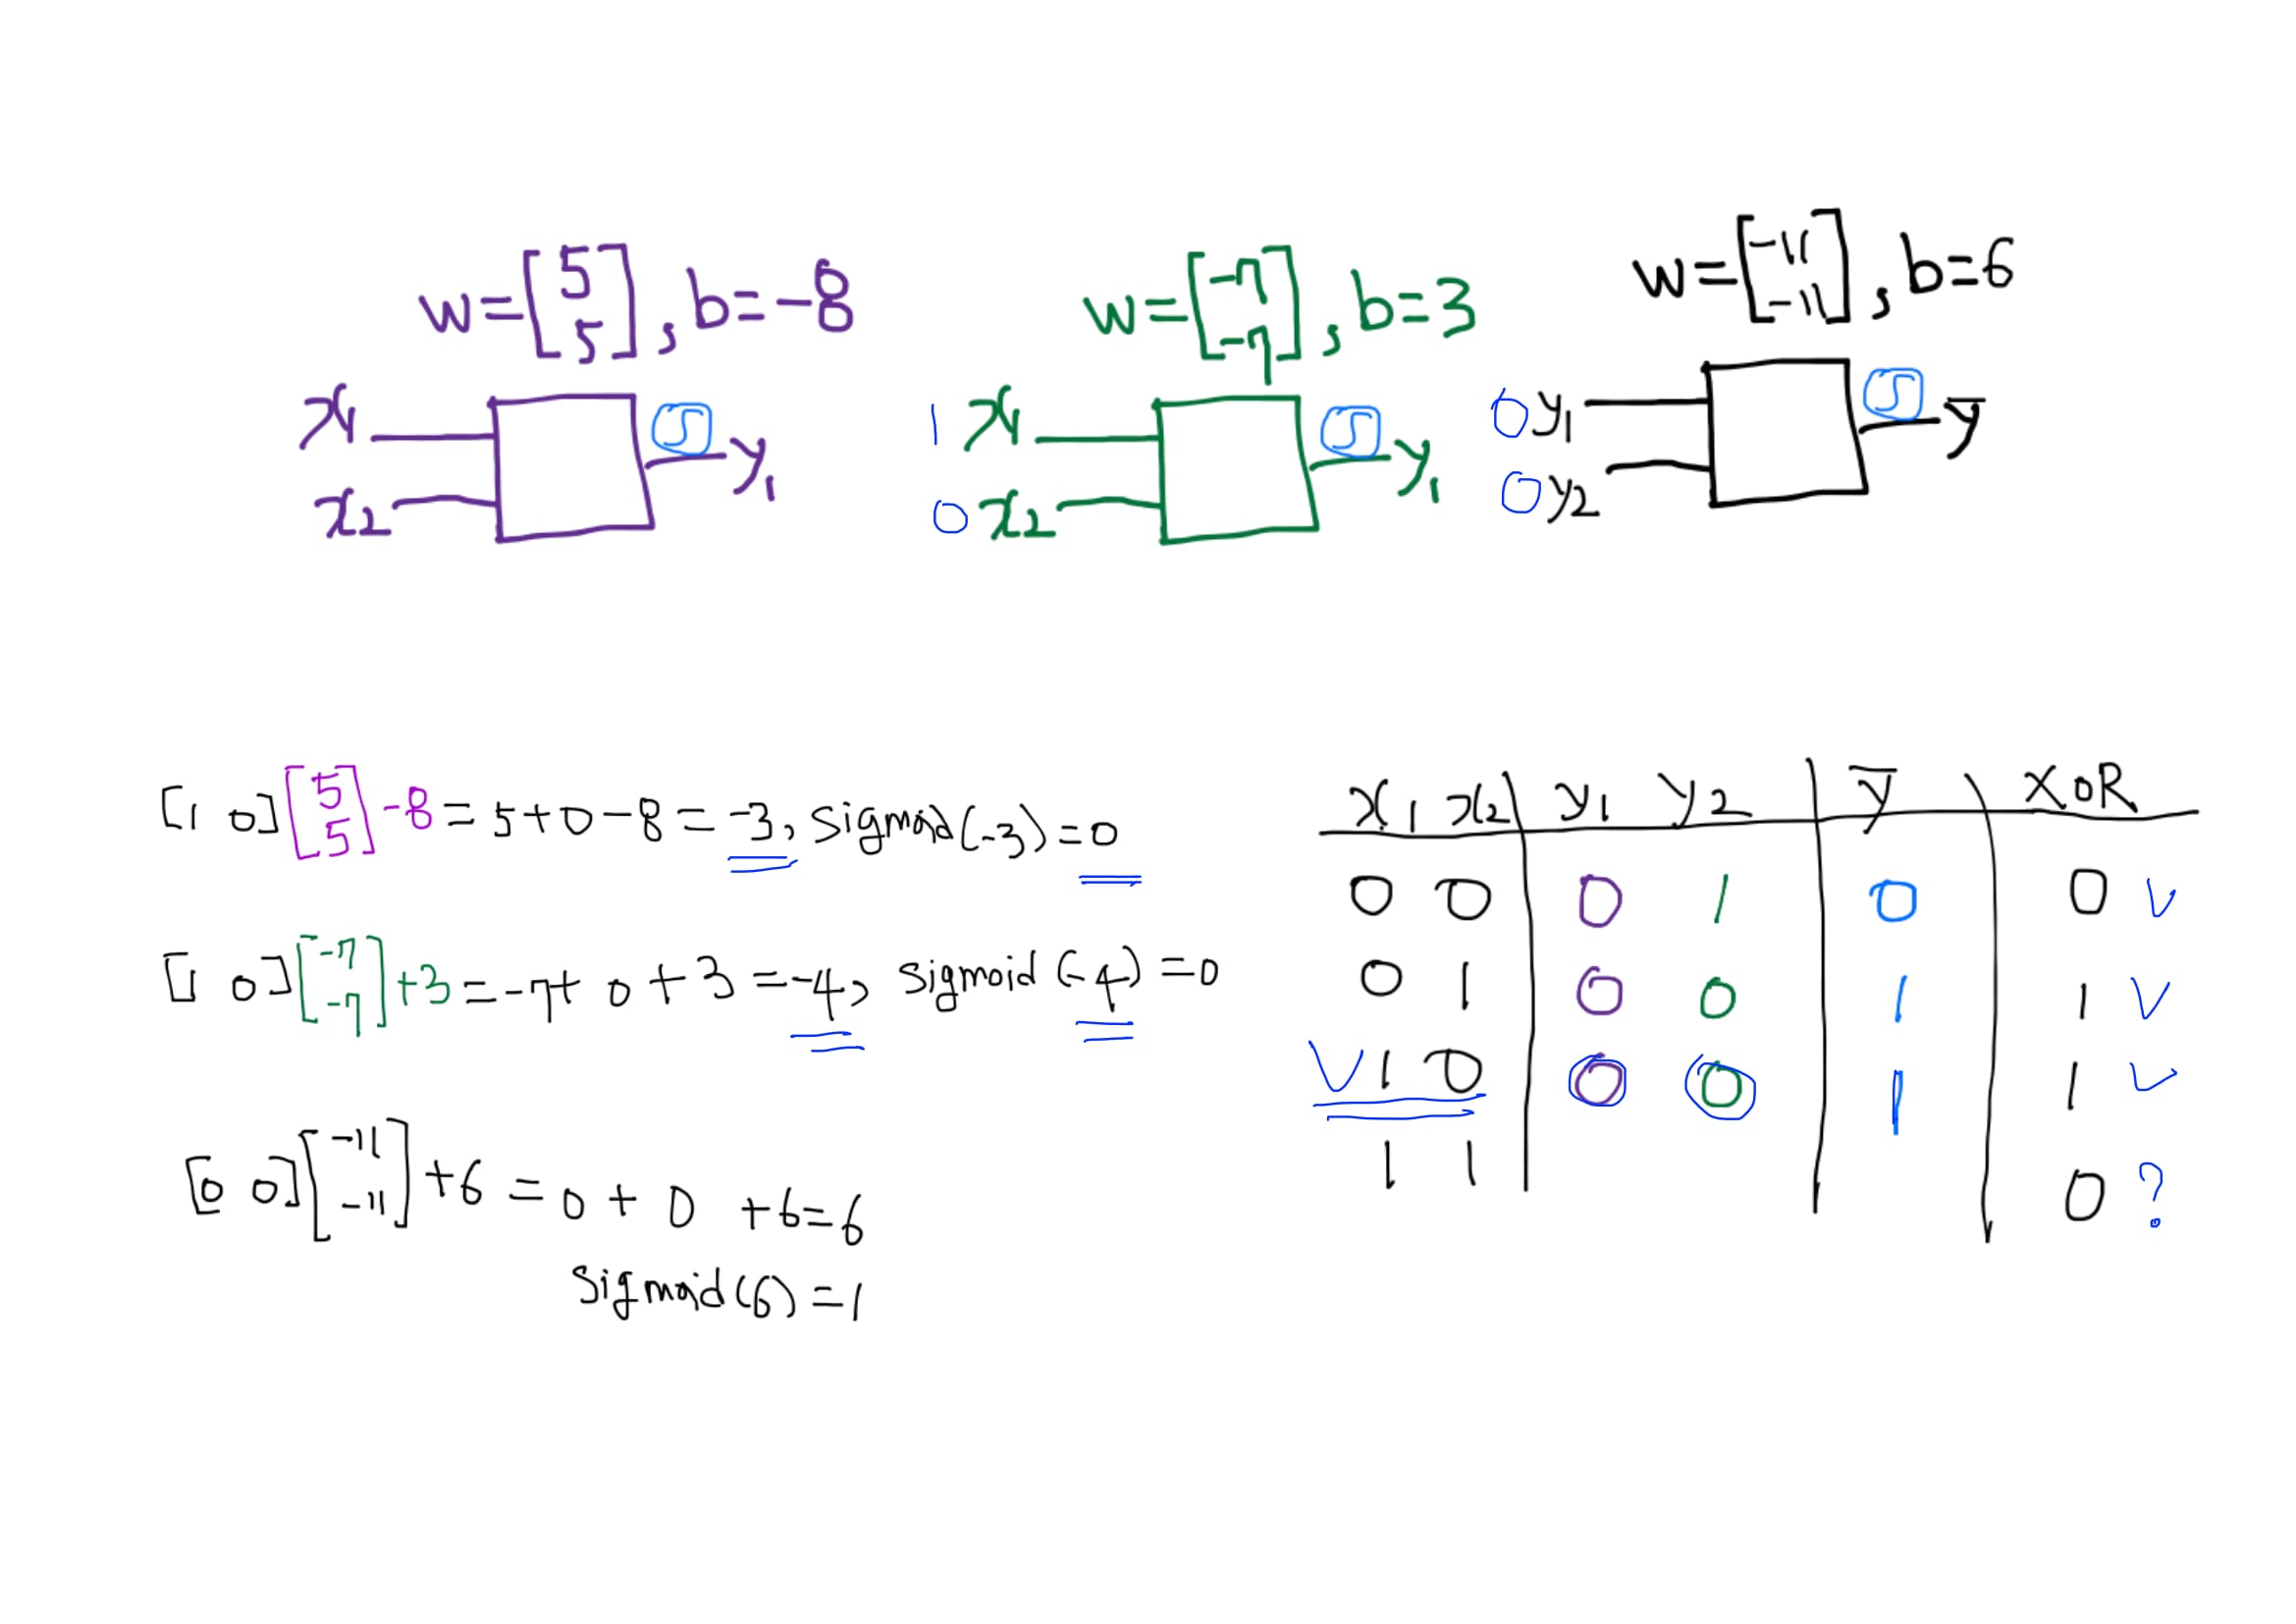 w=[5 5], b=-8
w=[-7 -7], b=3
w=[-11 -11], b=6
x1 S y1
x2
1 x1 S y1
0 x2
0 y1 S y̅
0 y2
[1 0][5 5]-8=5+0-8=-3, sigmoid(-3)=0
[1 0][-7 -7]+3=-7+0+3=-4, sigmoid(-4)=0
[0 0][-11 -11]+6=0+0+6=6
sigmoid(6)=1
x1 x2 y1 y2 y̅ XOR
0 0 0 1 0 0 v
0 1 0 0 1 1 v
v 1 0 0 0 1 1 v
1 1 0 ?